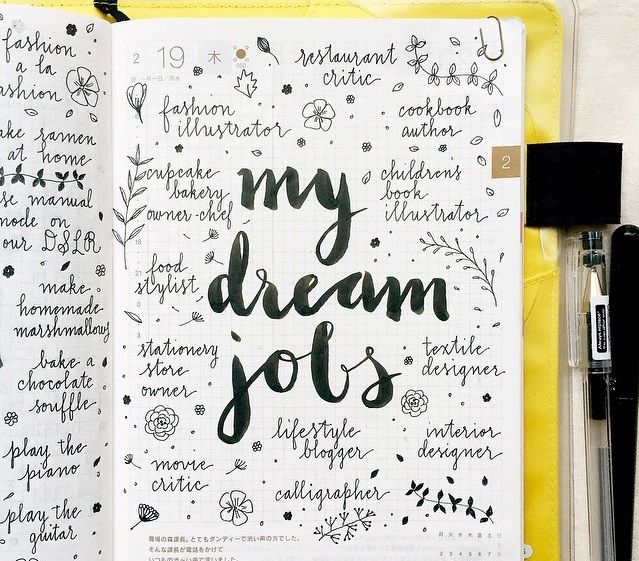 fashion
a la
ashion
ake ramen
at home
se manual
mode on
our DSLR
make
homemade
marshmallows
bake a
chocolate
souffle
play the
piano
play the
guitar
2 19 木
restaurant
critic
fashion
illustrator
cookbook
author
cupcake
bakery
owner-chef
my
children's
book
illustrator
2
food
stylist
dream
stationery
store
owner
jobs
textile
designer
lifestyle
blogger
interior
designer
movie
critic
calligrapher
職場の森課長。とてもダンディーで渋い声の方でした。
そんな課長が電話をかけて
月 火 水 木 金 土 日